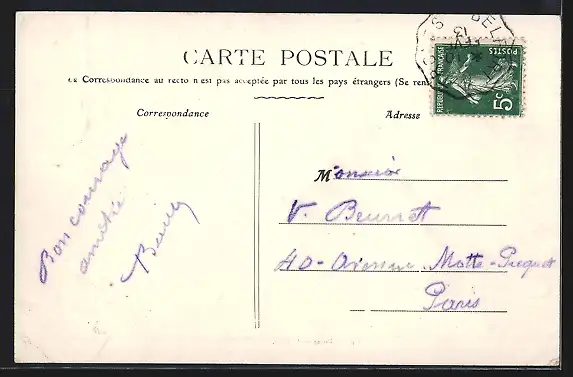 CARTE POSTALE
La Correspondance au recto n'est pas acceptée par tous les pays étrangers (Se ren
Correspondance
Adresse
POSTES
REPUBLIQUE FRANÇAISE
5c
Bon courage
amitié
Monsieur
V. Beurret
40 - Avenue Motte-Picquet
Paris